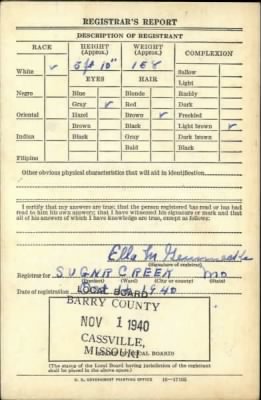 REGISTRAR'S REPORT
DESCRIPTION OF REGISTRANT
RACE HEIGHT (Approx.) WEIGHT (Approx.) COMPLEXION
White ✓ 5 ft 10" 158 Sallow
EYES HAIR Light
Negro Blue Blonde Ruddy
Gray ✓ Red Dark
Oriental Hazel Brown ✓ Freckled
Brown Black Light brown ✓
Indian Black Gray Dark brown
Bald Black
Filipino
Other obvious physical characteristics that will aid in identification
I certify that my answers are true; that the person registered has read or has had
read to him his own answers; that I have witnessed his signature or mark and that
all of his answers of which I have knowledge are true, except as follows:
Ella M
(Signature of registrar)
Registrar for SUGAR CREEK MO
(City or county) (State)
Date of registration 1940
LOCAL BOARD
BARRY COUNTY
NOV 1 1940
CASSVILLE,
MISSOURI
(STAMP OF LOCAL BOARD)
(The stamp of the Local Board having jurisdiction of the registrant
shall be placed in the above space.)
U. S. GOVERNMENT PRINTING OFFICE 16-17105